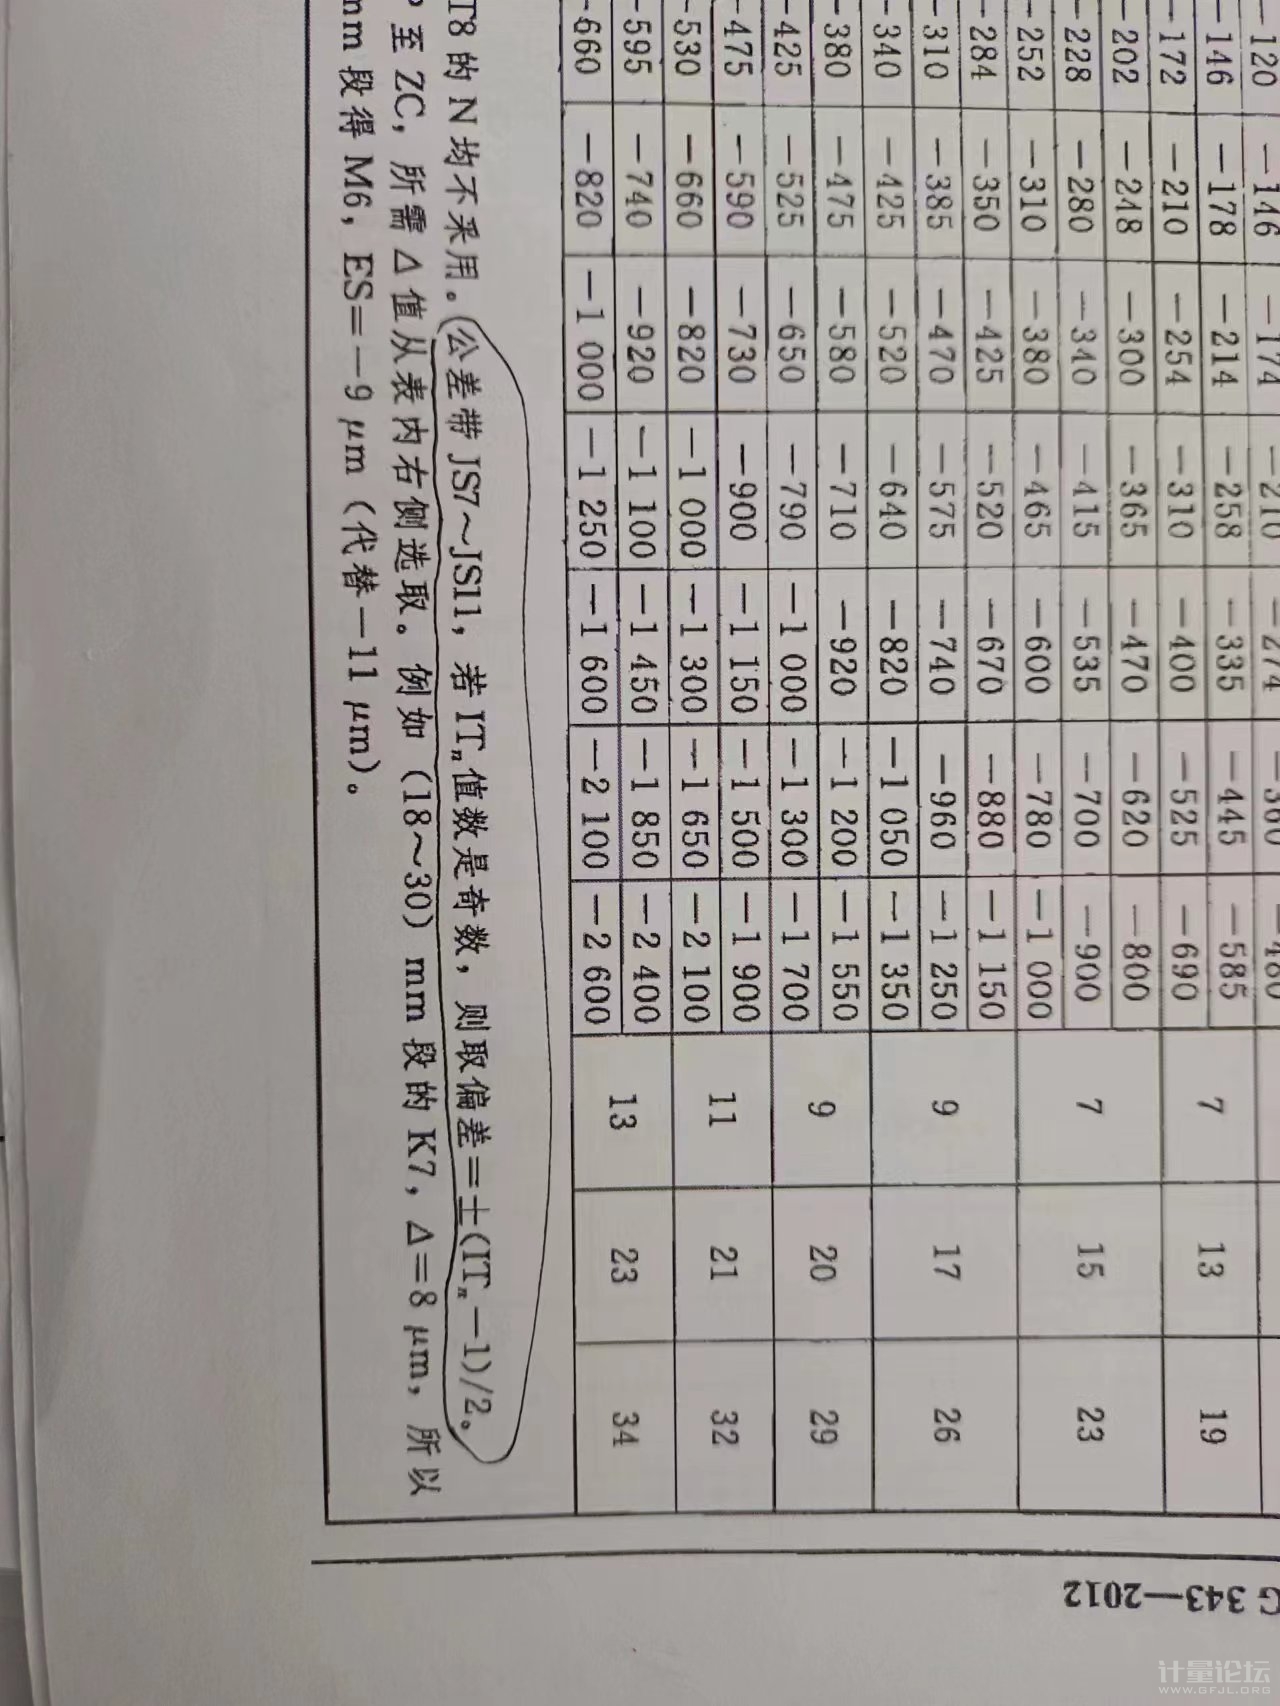 G 343—2012
－120 －146 －174 －210 －274 －360 －480
－146 －178 －214 －258 －335 －445 －585 7 13 19
－172 －210 －254 －310 －400 －525 －690
－202 －248 －300 －365 －470 －620 －800
－228 －280 －340 －415 －535 －700 －900 7 15 23
－252 －310 －380 －465 －600 －780 －1 000
－284 －350 －425 －520 －670 －880 －1 150
－310 －385 －470 －575 －740 －960 －1 250 9 17 26
－340 －425 －520 －640 －820 －1 050 －1 350
－380 －475 －580 －710 －920 －1 200 －1 550 9 20 29
－425 －525 －650 －790 －1 000 －1 300 －1 700
－475 －590 －730 －900 －1 150 －1 500 －1 900 11 21 32
－530 －660 －820 －1 000 －1 300 －1 650 －2 100
－595 －740 －920 －1 100 －1 450 －1 850 －2 400 13 23 34
－660 －820 －1 000 －1 250 －1 600 －2 100 －2 600
T8 的 N 均不采用。公差带 JS7～JS11，若 ITn 值数是奇数，则取偏差＝±(ITn－1)/2。
P 至 ZC，所需 Δ 值从表内右侧选取。例如（18～30）mm 段的 K7，Δ＝8 μm，所以
mm 段得 M6，ES＝－9 μm（代替－11 μm）。
计量论坛
WWW.GFJL.ORG